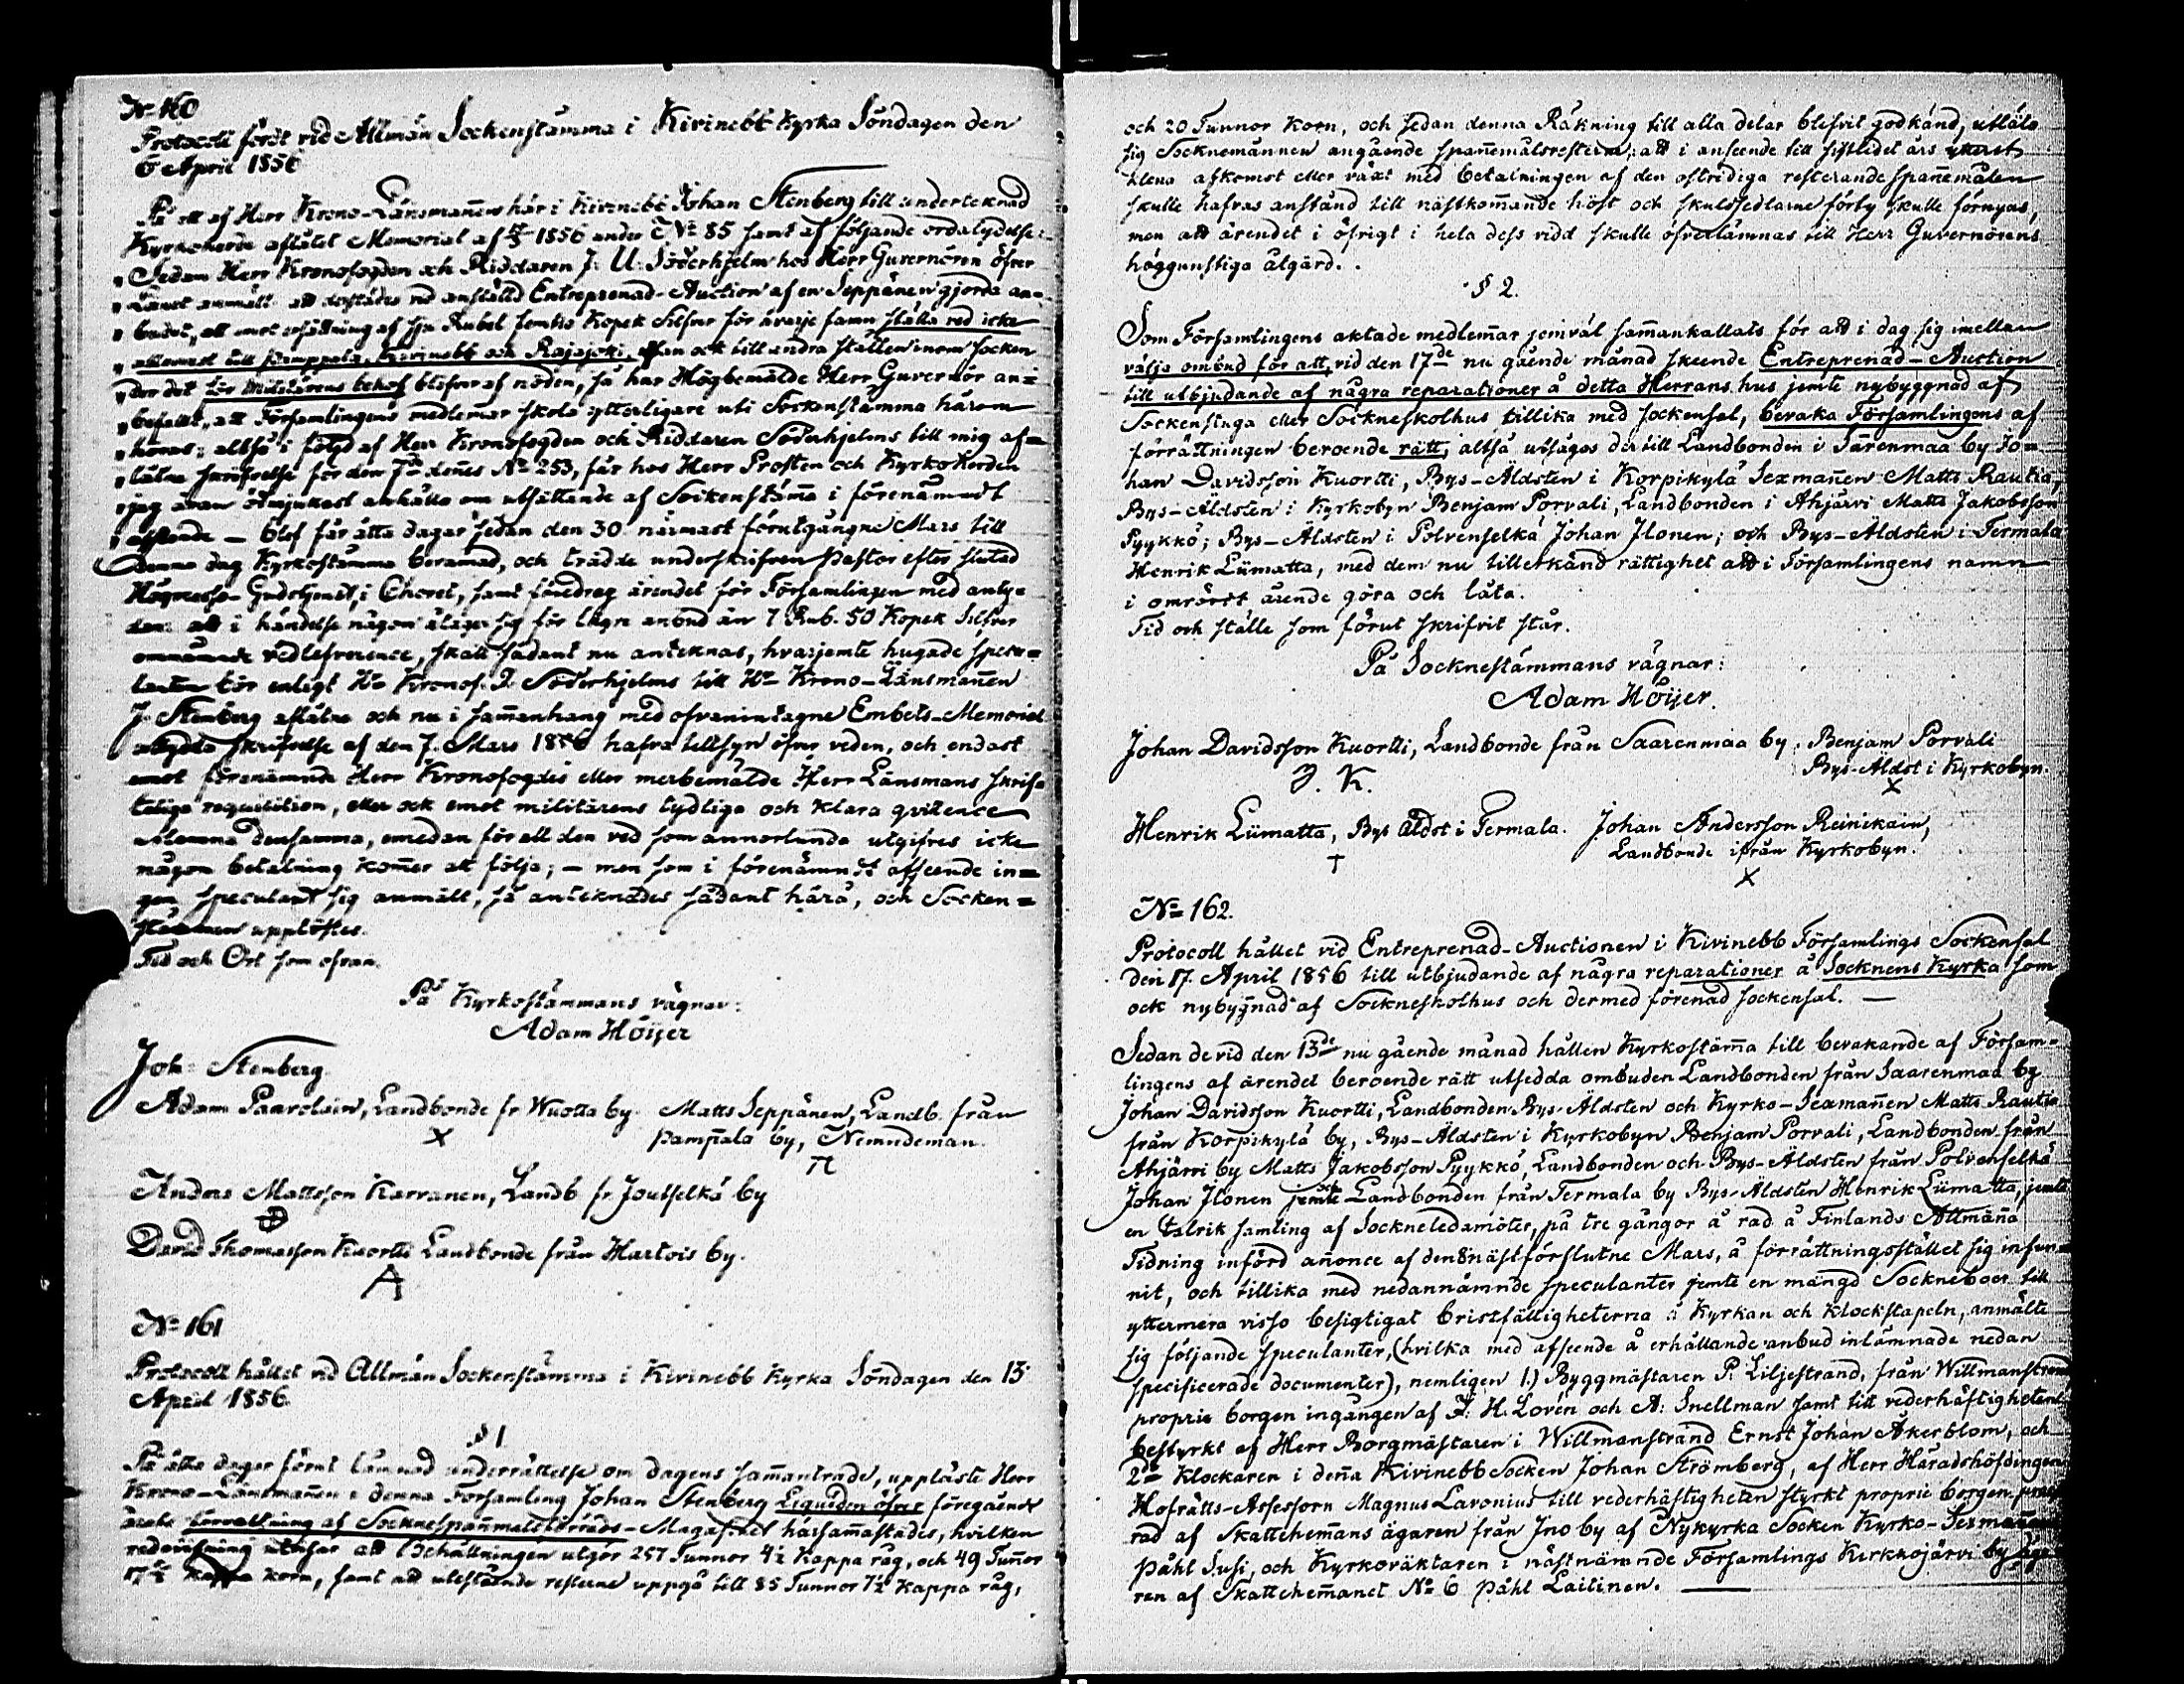 No 160
Protocoll fördt vid Allmän Sockenstämma i Kivinebb Kyrka Söndagen den
6 April 1856
På ett af Herr Krono-Länsmannen här i Kivinebb Johan Stenberg till undertecknad
Kyrkoherde aflåtet Memorial af 1856 under No 85 samt af följande ordalydelse:
"Sedan Herr Kronofogden och Riddaren J. U. Söderhjelm hos Herr Guvernören öfver
"Länet anmält att derstädes vid anställd Entreprenad-Auction af en Seppänen gjorda an-
"budet, att emot erhållning af sju Rubel femtio Kopek Silfver för hvarje famn ställa ved icke
"allenast till Pamppala, Kivinebb och Rajajoki, utan ock till andra ställen inom socken
"der det för militärens behof blefve af nöden, så har Högbemälde Herr Guvernör an=
"befallt, att Församlingens medlemar skola ytterligare uti Sockenstämma härom
"höras; alltså i följd af Herr Kronofogden och Riddaren Söderhjelms till mig af=
"låtna skrifvelse för den 7de dennes No 253, får hos Herr Prosten och Kyrkoherden
"jag äran ödmjukast anhålla om utsättande af Sockenstämma i förenämndt
"afseende — blef för åtta dagar sedan den 30 närmast förutgångne Mars till
denna dag Kyrkostämma beramad, och trädde underskrifven Pastor efter slutad
Högmesso-Gudstjenst, i Choret, samt föredrog ärendet för Församlingen med anty-
dan att i händelse någon åtager sig för lägre anbud än 7 Rub. 50 Kopek Silfver
omnämnde vedlefverence, skall sådant nu antecknas, hvarjemte hugade specu=
lanten bör enligt Hr Kronof. J. Söderhjelms till Hr Krono-Länsmannen
J. Stenberg aflåtna och nu i sammanhang med ofvanintagne Embets-Memorial
skrifvelse af den 7. Mars 1856 hafva tillsyn öfver veden, och endast
emot förenämnde Herr Kronofogdes eller merbemälde Herr Länsmans skrift=
teliga requisition, eller ock emot militärens tydliga och klara qvittence
utlemna densamma, emedan för all den ved som annorlunda utgifves icke
någon betalning kommer att följa; — men som i förenämndt afseende in=
gen speculant sig anmält, så antecknades sådant härå, och Socken=
stämman upplöstes.
Tid och Ort som ofvan.
På Kyrkostämmans vägnar:
Adam Höijer
Joh: Stenberg
Adam Paavolain, Landbonde fr. Wuotta by. Matts Seppänen, Landb. från
X Pampala by, Nemndeman.
Anders Mattsson Karvanen, Landb fr. Joutselkä by
David Thomasson Kuortti Landbonde från Hartois by.
A
No 161
Protocoll hållet vid Allmän Sockenstämma i Kivinebb Kyrka Söndagen den 13
April 1856.
§ 1
På åtta dagar förut lämnad underrättelse om dagens sammanträde, uppläste Herr
Krono-Länsmannen i denna Församling Johan Stenberg Liquiden öfver föregående
årets förvaltning af Socknespannmålsförråds-Magasinet härsammastädes, hvilken
redovisning utvisar att behållningen utgör 257 Tunnor 4½ Kappa råg, och 49 Tunnor
17½ Kappa korn, samt att utestående resterne uppgå till 85 Tunnor 7½ Kappa råg,
och 20 Tunnor Korn, och sedan denna Räkning till alla delar blifvit godkänd, utläto
sig Socknemännen angående spannemålsresterna, att i anseende till sistlidet års ytterst
klena afkomst eller växt med betalningen af den ostridiga resterande spannemålen
skulle hafvas anstånd till nästkommande höst och skuldsedlarne förty skulle förnyas,
men att ärendet i öfrigt i hela dess vidd skulle öfverlämnas till Herr Guvernörens
höggunstiga åtgärd.
§ 2.
Som Församlingens aktade medlemar jemväl sammankallats för att i dag sig imellan
välja ombud för att, vid den 17de nu gående månad skeende Entreprenad-Auction
till utbjudande af några reparationer å detta Herrans hus jemte nybyggnad af
Sockenstuga eller Sockneskolhus tillika med sockensal, bevaka Församlingens af
förrättningen beroende rätt, alltså utsågos dertill Landbonden i Sarenmaa by Jo=
han Davidsson Kuortti, Bys-Åldsten i Korpikylä Sexmannen Matts Rautia,
Bys-Åldsten i Kyrkobyn Benjam Porvali, Landbonden i Ahjärvi Matts Jakobsson
Pyykkö; Bys-Åldsten i Polvenselkä Johan Ilonen; och Bys-Åldsten i Termala
Henrik Liimatta, med dem nu tillerkänd rättighet att i Församlingens namn
i omrördt ärende göra och låta.
Tid och ställe som förut skrifvit står.
På Socknestämmans vägnar:
Adam Höijer.
Johan Davidsson Kuortti, Landbonde från Saarenmaa by. Benjam Porvali
J. K. Bys-Åldst i Kyrkobyn.
X
Henrik Liimatta, Bys Åldst i Termala. Johan Andersson Reinikain,
† Landbonde ifrån Kyrkobyn.
X
No 162.
Protocoll hållet vid Entreprenad-Auctionen i Kivinebb Församlings Sockensal
den 17. April 1856 till utbjudande af några reparationer å Socknens Kyrka som
ock nybygnad af Sockneskolhus och dermed förenad sockensal. —
Sedan de vid den 13de nu gående månad hållen Kyrkostämma till bevakande af Försam=
lingens af ärendet beroende rätt utsedda ombuden Landbonden från Saarenmaa by
Johan Davidsson Kuortti, Landbonden Bys-Åldsten och Kyrko-Sexmannen Matts Rautia
från Korpikylä by, Bys-Åldsten i Kyrkobyn Benjam Porvali, Landbonden från
Ahjärvi by Matts Jakobsson Pyykkö, Landbonden och Bys-Åldsten från Polvenselkä
Johan Ilonen jemte och Landbonden från Termala by Bys-Åldsten Henrik Liimatta, jemte
en talrik samling af Sockneledamöter, på tre gångor å rad å Finlands Allmänna
Tidning införd annonce af den 8 nästförflutne Mars, å förrättningsstället sig infun=
nit, och tillika med nedannämnde speculanter jemte en mängd Sockneboer till
yttermera visso besigtigat bristfälligheterna å Kyrkan och Klockstapeln, anmälte
sig följande speculanter, (hvilka med afseende å erhållande anbud inlämnade nedan
specificerade documenter), nemligen 1.) Byggmästaren P. Liljestrand, från Willmanstrand
proprie borgen ingången af J. H. Lovén och A: Snellman samt till vederhäftigheten
bestyrkt af Herr Borgmästaren i Willmanstrand Ernst Johan Åkerblom, och
2de Klockaren i denna Kivinebb Socken Johan Strömberg, af Herr Häradshöfdingen
Hofrätts-Assessorn Magnus Lavonius till vederhäftigheten styrkt proprie borgen
rad af Skattehemans ägaren från Ino by af Nykyrka Socken Kyrko-Sexmannen
Påhl Susi, och Kyrkoväktaren i nästnämnde Församlings Kirkkojärvi by äga=
ren af Skattehemanet No 6 Påhl Laitinen. —